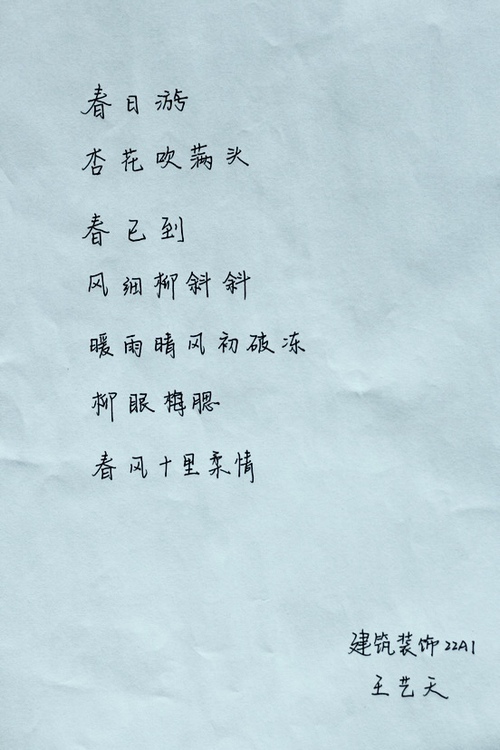 春日游
杏花吹满头
春已到
风细柳斜斜
暖雨晴风初破冻
柳眼梅腮
春风十里柔情
建筑装饰22A1
王艺天